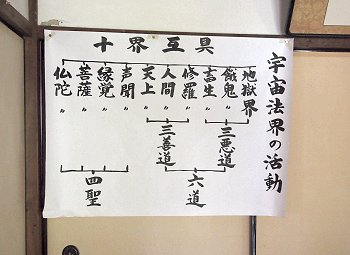 宇宙法界の活動
十界互具
地獄界
餓鬼〃
畜生〃
修羅〃
人間〃
天上〃
声聞〃
縁覚〃
菩薩〃
仏陀〃
三悪道
三善道
六道
四聖